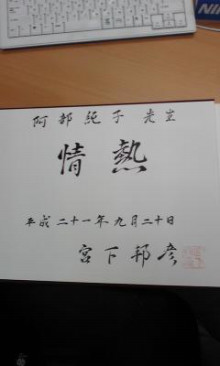 阿部純子先生
情熱
平成二十一年九月二十日
宮下邦彦